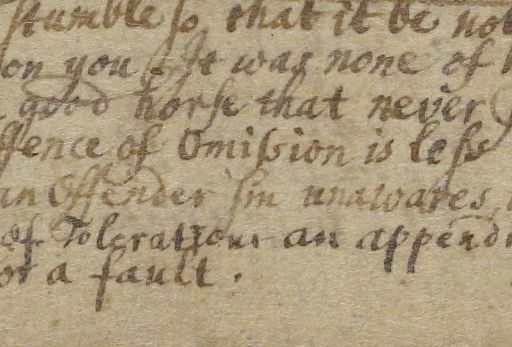 stumbles so that it be not
on you. It was none of
good horse that never
ffence of Omission is less
an Offender sin unawares,
of Toleration an append
or a fault.